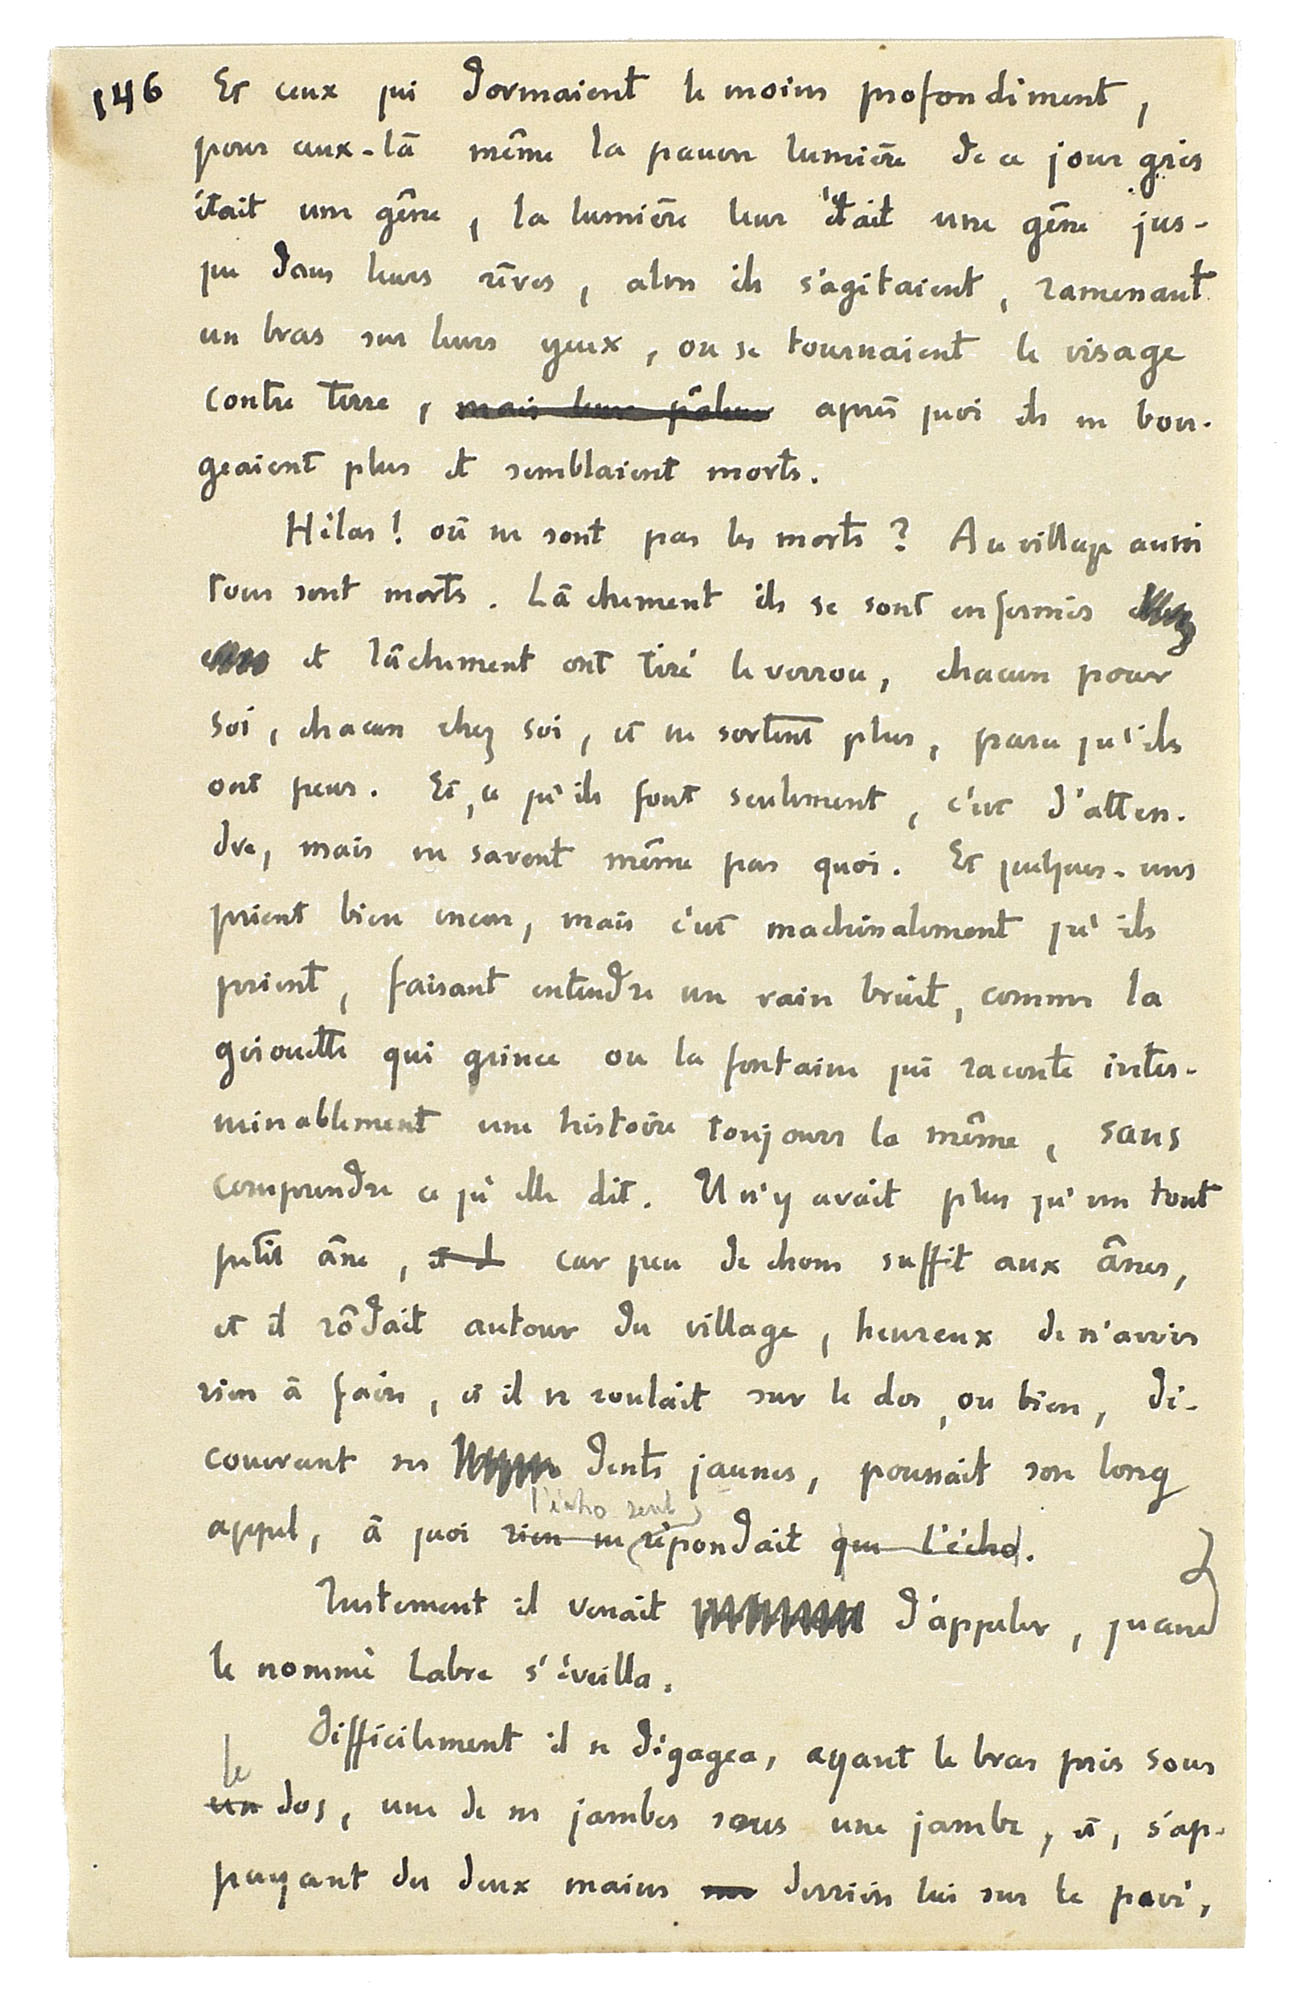 146 Et ceux qui dormaient le moins profondément,
pour ceux-là même la pauvre lumière de ce jour gris
était une gêne, la lumière leur était une gêne jus-
que dans leurs rêves, alors ils s'agitaient, ramenant
un bras sur leurs yeux, ou se tournaient le visage
contre terre, mais leur pâleur après quoi ils ne bou-
geaient plus et semblaient morts.
Hélas! où ne sont pas les morts? Au village aussi
tous sont morts. Lâchement ils se sont enfermés chez
eux et lâchement ont tiré le verrou, chacun pour
soi, chacun chez soi, et ne sortent plus, parce qu'ils
ont peur. Et, ce qu'ils font seulement, c'est d'atten-
dre, mais ne savent même pas quoi. Et quelques-uns
prient bien encore, mais c'est machinalement qu'ils
prient, faisant entendre un vain bruit, comme la
girouette qui grince ou la fontaine qui raconte inter-
minablement une histoire toujours la même, sans
comprendre ce qu'elle dit. Il n'y avait plus qu'un tout
petit âne, et il car peu de chose suffit aux ânes,
et il rôdait autour du village, heureux de n'avoir
rien à faire, et il se roulait sur le dos, ou bien, dé-
couvrant ses dents jaunes, poussait son long
l'écho seul
appel, à quoi rien ne répondait que l'écho.
Justement il venait d'appeler, quand
le nommé Labre s'éveilla.
Difficilement il se dégagea, ayant le bras pris sous
le
un dos, une de ses jambes sous une jambe, et, s'ap-
puyant des deux mains sur derrière lui sur le pavé,